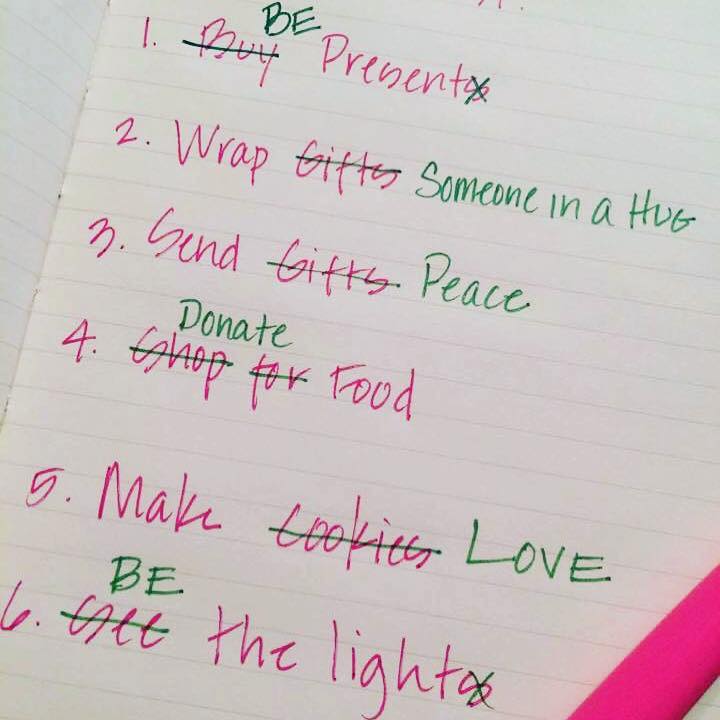 BE
1. Buy Presents
2. Wrap Gifts Someone in a Hug
3. Send Gifts Peace
Donate
4. Shop for Food
5. Make Cookies LOVE
BE
6. See the lights